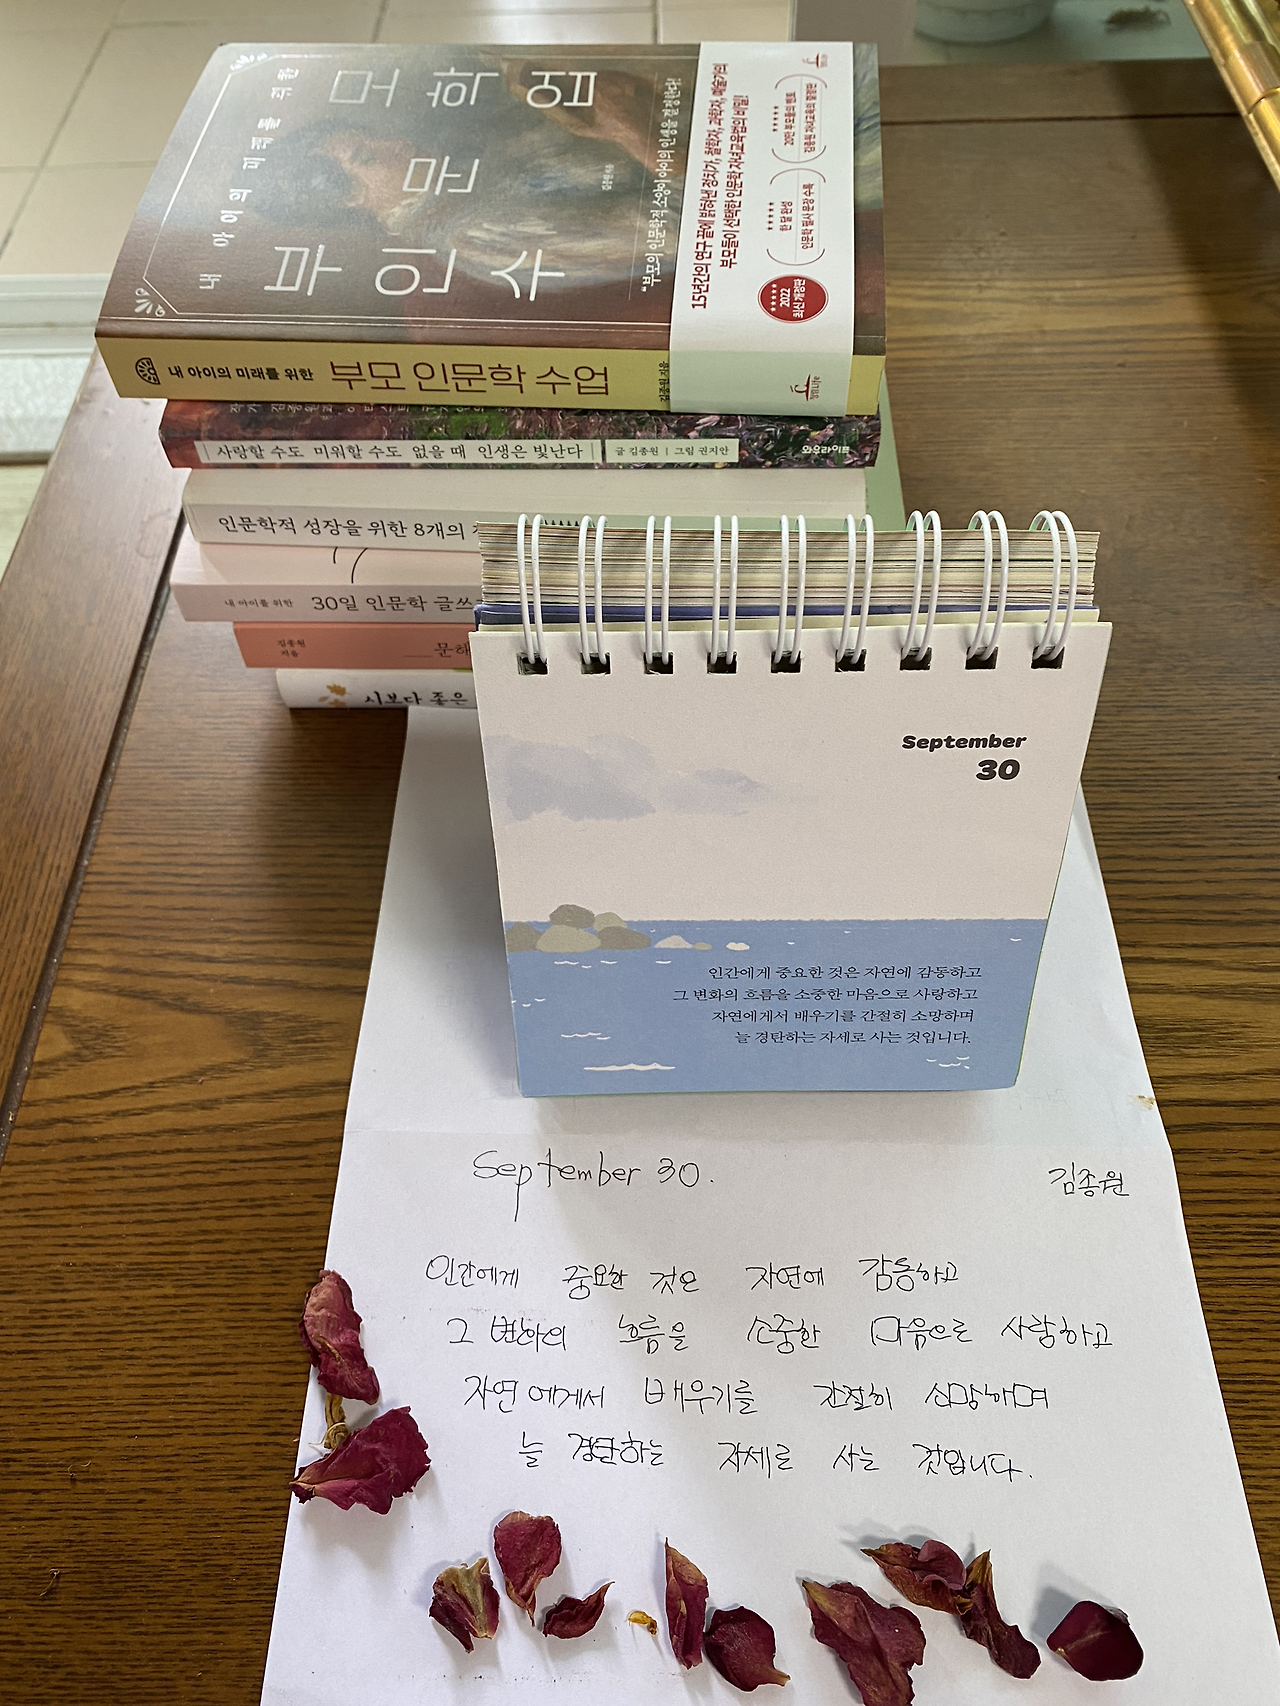 내 아이의 미래를 위한
부모
인문학
수업
김종원 지음
"부모의 인문학적 소양이 아이의 인생을 결정한다!"
15년간의 연구 끝에 밝혀낸 정치가, 철학자, 과학자, 예술가의
부모들이 선택한 인문학 자녀교육법의 비밀!
20만 부모들의 멘토
김종원 자녀교육의 결정판
한 달 완성
인문학 필사 문장 수록
2022
최신 개정판
내 아이의 미래를 위한 부모 인문학 수업 김종원 지음
청림Life
사랑할 수도 미워할 수도 없을 때 인생은 빛난다 글 김종원 | 그림 권지안 와우라이프
인문학적 성장을 위한 8개의
내 아이를 위한 30일 인문학 글쓰
김종원
지음
문해
시보다 좋은
September
30
인간에게 중요한 것은 자연에 감동하고
그 변화의 흐름을 소중한 마음으로 사랑하고
자연에게서 배우기를 간절히 소망하며
늘 경탄하는 자세로 사는 것입니다.
September 30. 김종원
인간에게 중요한 것은 자연에 감동하고
그 변화의 흐름을 소중한 마음으로 사랑하고
자연에게서 배우기를 간절히 소망하며
늘 경탄하는 자세로 사는 것입니다.